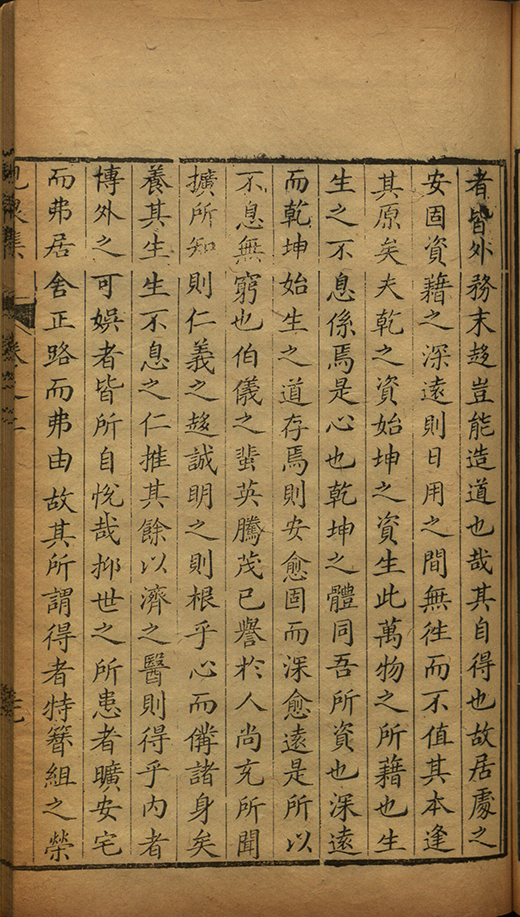 者皆外務末趍豈能造道也哉其自得也故居處之
安固資藉之深遠則日用之間無徃而不值其本逢
其原矣夫乾之資始坤之資生此萬物之所藉也生
生之不息係焉是心也乾坤之體同吾所資也深遠
而乾坤始生之道存焉則安愈固而深愈遠是所以
不息無窮也伯儀之蜚英騰茂已譽於人尚充所聞
擴所知則仁義之趍誠明之則根乎心而備諸身矣
養其生生不息之仁推其餘以濟之醫則得乎内者
博外之可娛者皆所自悅哉抑世之所患者曠安宅
而弗居舍正路而弗由故其所謂得者特簪組之榮
集 卷之